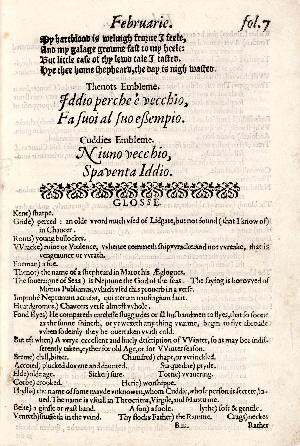 Februarie. fol.7
My hartblood is welnigh frorne I feele,
And my galage growne fast to my heele:
But little ease of thy lewd tale I tasted.
Hye thee home shepheard, the day is nigh wasted.
Thenots Embleme.
Iddio perche è vecchio,
Fa suoi al suo essempio.
Cuddies Embleme.
Niuno vecchio,
Spaventa Iddio.
GLOSSE.
Kene) sharpe.
Gride) perced: an olde word much vsed of Lidgate, but not found (that I know of)
in Chaucer.
Ronts) young bullockes.
VVracke) ruine or Violence, whence commeth shipwracke: and not wreake, that is
vengeaunce or wrath.
Foeman) a foe.
Thenot) the name of a shepheard in Marot his Æglogues.
The soueraigne of Seas) is Neptune the God of the seas. The saying is borowed of
Mimus Publianus, which vsed this prouerb in a verse.
Improbè Neptunum accusat, qui iterum naufragium facit.
Heardgromes) Chaucers verse almost whole.
Fond Flyes) He compareth carelesse sluggardes or ill husbandmen to flyes, that so soone
as the sunne shineth, or yt wexeth any thing warme, begin to flye abroade
when sodeinly they be ouertaken with cold.
But eft when) A verye excellent and liuely description of VVinter, so as may bee indif-
ferently taken, eyther for old Age, or for VVinter season.
Breme) chill, bitter. Chamfred) chapt, or wrinckled.
Accoied, plucked downe and daunted. Surquedrie) pryde.
Elde) olde age. Sicker) sure. Tottie) wauering.
Corbe) crooked. Herie) worshippe.
Phyllis) the name of some mayde vnknowen, whom Cuddie, whose person is secrete, lo-
ued. The name is vsuall in Theocritus, Virgile, and Mantuane.
Belte) a girdle or wast band. A fon) a foole. lythe) soft & gentile.
Venteth) snuffeth in the wind. Thy flocks Father) the Ramme. Crags) neckes
B iii. Rather